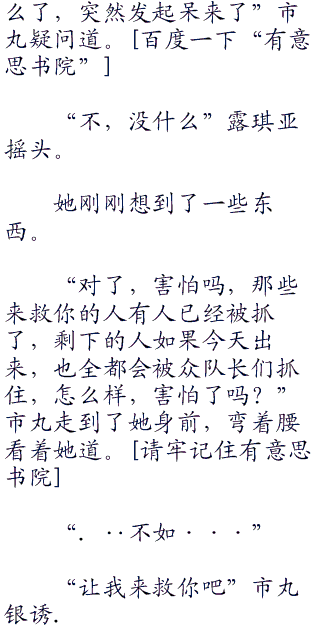 么了，突然发起呆来了”市
丸疑问道。[百度一下“有意
思书院”]
“不，没什么”露琪亚
摇头。
她刚刚想到了一些东
西。
“对了，害怕吗，那些
来救你的人有人已经被抓
了，剩下的人如果今天出
来，也全都会被众队长们抓
住，怎么样，害怕了吗？”
市丸走到了她身前，弯着腰
看着她道。[请牢记住有意思
书院]
“．··不如···”
“让我来救你吧”市丸
银诱.